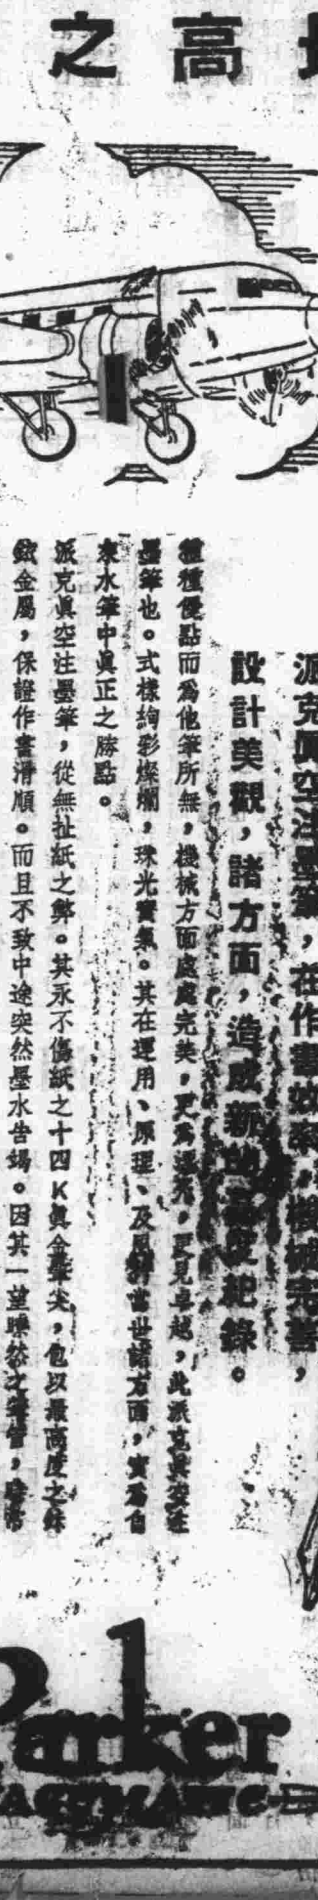 高之
派克眞空注墨筆，在作書效率，機械完善，
設計美觀，諸方面，造成新的高度紀錄。
種種優點而爲他筆所無，機械方面處處完美，更爲漂亮，更見卓越，此派克眞空注
墨筆也。式樣絢彩燦爛，珠光寶氣。其在運用、原理、及原料當世諸方面，實爲自
來水筆中眞正之勝點。
派克眞空注墨筆，從無扯紙之弊。其永不傷紙之十四K眞金筆尖，包以最高度之銥
銥金屬，保證作書滑順。而且不致中途突然墨水告竭。因其一望瞭然之筆管，
Parker